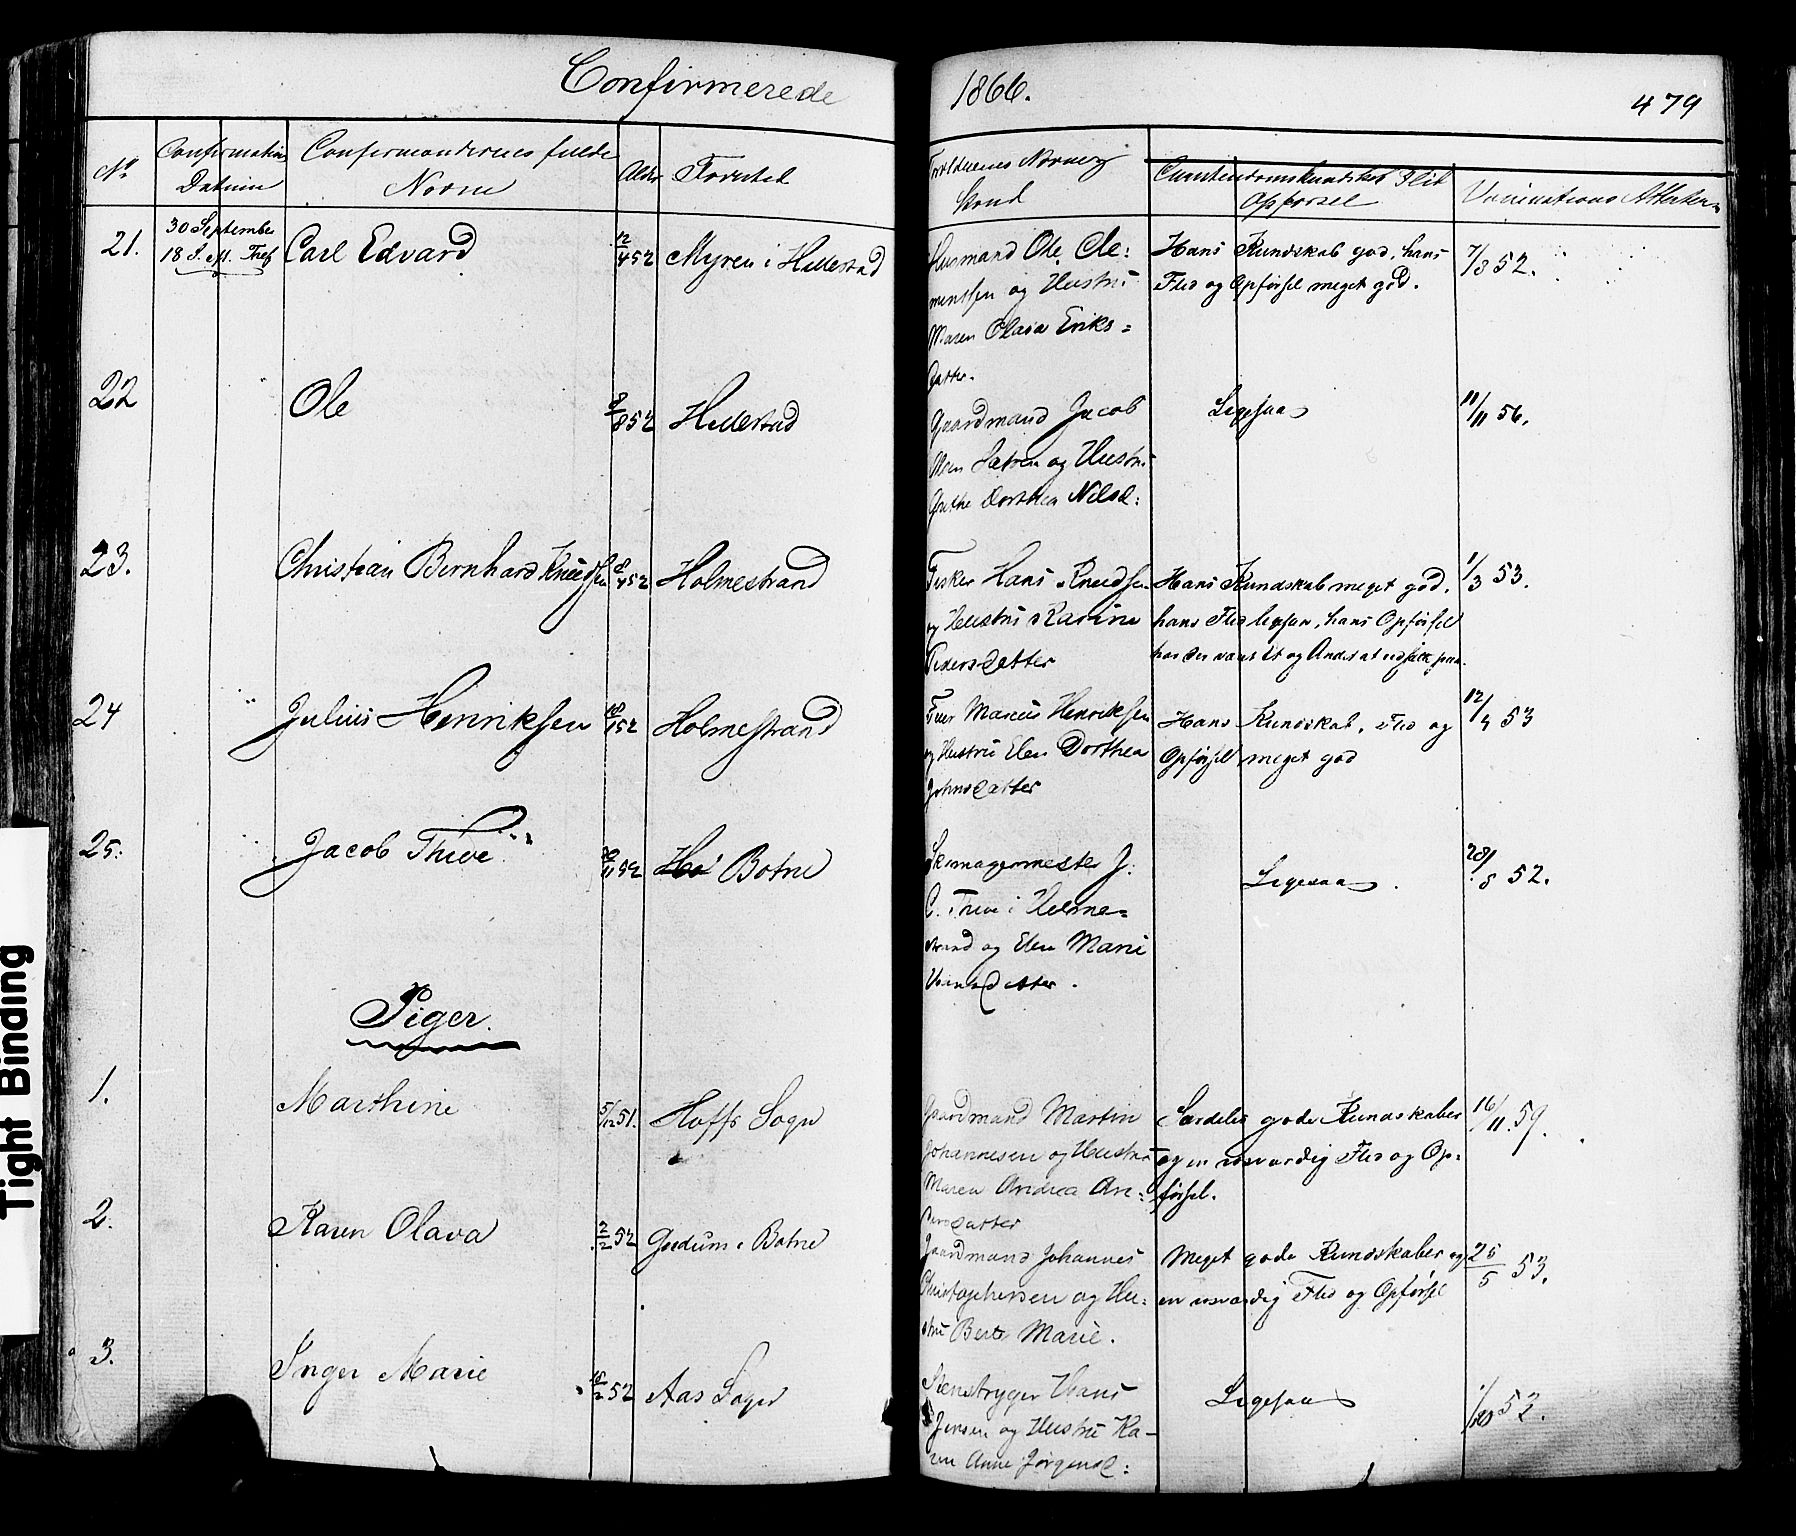 Confirmerede
1866.
479
No
Confirmations Datum
Confirmandernes fulde Navne
Alder
Fødested
Forældrenes Navne og Stand
Christendomskundskab Flid Opførsel
Vaccinations Attester
21.
30 September
18 S. e. Tref
Carl Edvard
12/4 52
Myren i Hillestad
Husmand Ole Cle=
mentsen og Hustru
Maren Olava Eriks=
datter.
Hans Kundskab god, hans
Flid og Opførsel meget god.
7/3 52.
22
Ole
8/8 52
Hillestad
Gaardmand Jacob
og Hustru
Grethe Dorthea Nilsd:
Ligesaa
11/11 56.
23.
Christian Bernhard Knudsen
8/4 52
Holmestrand
Fisker Hans Knudsen
og Hustru Karine
Pedersdatter
Hans Kundskab meget god,
hans Flid ligesaa, hans Opførsel
har der været Et og Andet at udsætte paa.
1/3 53.
24
Julius Henriksen
52
Holmestrand
Marcus Henriksen
og Hustru Elen Dorthea
Johnsdatter
Hans Kundskab, Flid og
Opførsel meget god
12/4 53
25.
Jacob Thive
11 52
Botne
Skomagermester J.
C. Thive i Holme=
strand og Elen Marie
datter.
Ligesaa.
28/8 52.
Piger.
1.
Marthine
5/12 51.
Hoffs Sogn
Gaardmand Martin
Johannesen og Hustru
Maren Andrea An=
dersdatter
Særdeles gode Kundskaber
og en rosværdig Flid og Op=
førsel.
16/11. 59.
2.
Karen Olava
2/2 52
Gudum i Botne
Gaardmand Johannes
Christophersen og Hu=
stru Berte Marie.
Meget gode Kundskaber og
en rosværdig Flid og Opførsel
25/5 53.
3.
Inger Marie
2 52
Aas Sogn
Stenbryger Hans
Jensen og Hustru Ka-
ren Anne Jørgensd:
Ligesaa
53.
Tight Binding